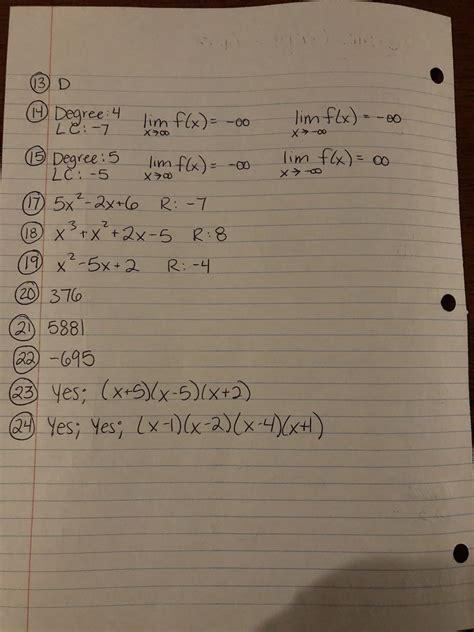 13 D
14 Degree: 4 lim f(x) = -∞ lim f(x) = -∞
LC: -7 x→∞ x→-∞
15 Degree: 5 lim f(x) = -∞ lim f(x) = ∞
LC: -5 x→∞ x→-∞
17 5x²-2x+6 R: -7
18 x³+x²+2x-5 R: 8
19 x²-5x+2 R: -4
20 376
21 5881
22 -695
23 Yes; (x+5)(x-5)(x+2)
24 Yes; Yes; (x-1)(x-2)(x-4)(x+1)